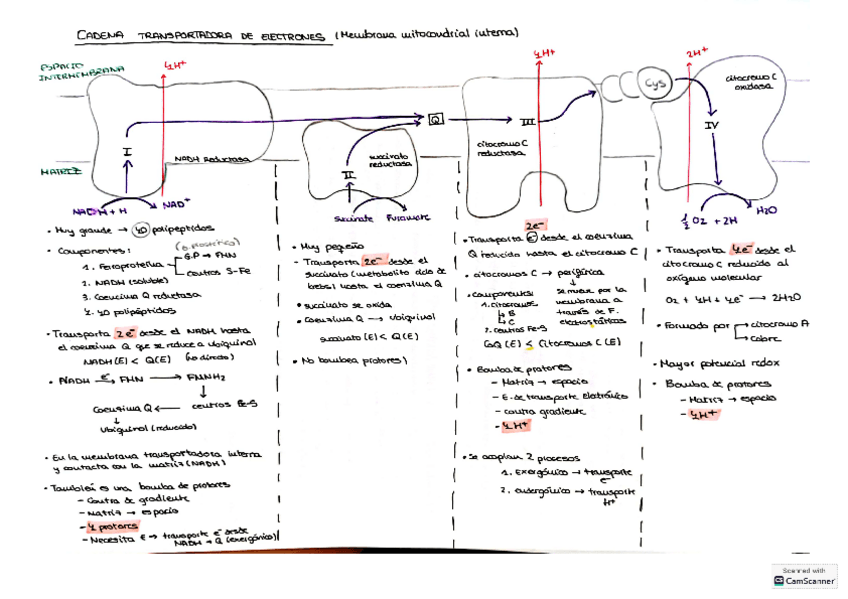 CADENA TRANSPORTADORA DE ELECTRONES (Membrana mitocondrial interna)
ESPACIO
INTERMEMBRANA
4H+
4H+
2H+
Cys
citocromo C
oxidasa
I
Q
III
IV
NADH Reductasa
II
succinato
reductasa
citocromo C
reductasa
MATRIZ
NADH + H
NAD+
succinate
Fumarate
2e-
½O2 + 2H
H2O
• Muy grande → 40 polipeptidos
• Componentes:
1. Feroproteína
G.P → FHN
centros S-Fe
2. NADH (soluble)
3. Coenzima Q reductasa
4. 40 polipéptidos
• Transporta 2e- desde el NADH hasta
el coenzima Q que se reduce a ubiquinol
NADH(E) < Q(E) (no directo)
• NADH e- → FHN → FMNH2
↓
Coenzima Q ← centros Fe-S
↓
Ubiquinol (reducado)
• En la membrana transportadora interna
y contacta con la matriz (NADH)
• También es una bomba de protones
- Contra de gradiente
- Matriz → espacio
- 4 protones
- Necesita E → transporte e- desde
NADH → Q (exergónico)
• Muy pequeño
- Transporta 2e- desde el
succinato (metabolito ciclo de
krebs) hasta el coenzima Q
• succinato se oxida
• Coenzima Q → Ubiquinol
succinato (E) < Q(E)
• No bombea protones!
• Transporta e- desde el coenzima
Q reducido hasta el citocromo C
• citocromos C → periférica
↓
se mueve por la
membrana a
través de F.
electrostáticas
• componentes:
1. citocromos
↳ B
↳ C
2. centros Fe-S
CoQ (E) ≤ Citocromos C (E)
• Bomba de protones
- Matriz → espacio
- E. de transporte electrónico
- contra gradiente
- 4H+
• Se acoplan 2 procesos
1. Exergónico → transporte
e-
2. endergónico → transporte
H+
• Transporta 4e- desde el
citocromo C reducido al
oxígeno molecular
O2 + 4H + 4e- → 2H2O
• Formado por
citocromo A
cobre
• Mayor potencial redox
• Bomba de protones
- Matriz → espacio
- 4H+
Scanned with
CS CamScanner